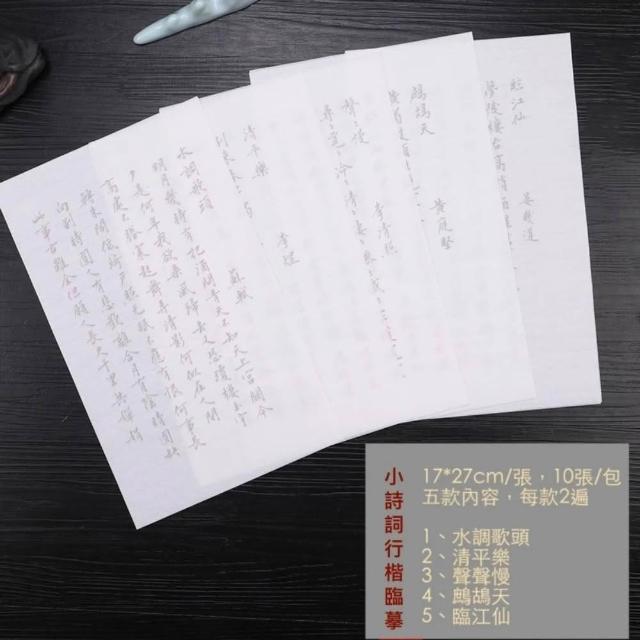 臨江仙
晏幾道
鷓鴣天
黃庭堅
聲聲慢
李清照
清平樂
李煜
水調歌頭
蘇軾
明月幾時有把酒問青天不知天上宮闕今
夕是何年我欲乘風歸去又恐瓊樓玉宇
高處不勝寒起舞弄清影何似在人間
轉朱閣低綺戶照無眠不應有恨何事長
向別時圓人有悲歡離合月有陰晴圓缺
此事古難全但願人長久千里共嬋娟
小詩詞行楷臨摹
17*27cm/張，10張/包
五款內容，每款2遍
1、水調歌頭
2、清平樂
3、聲聲慢
4、鷓鴣天
5、臨江仙